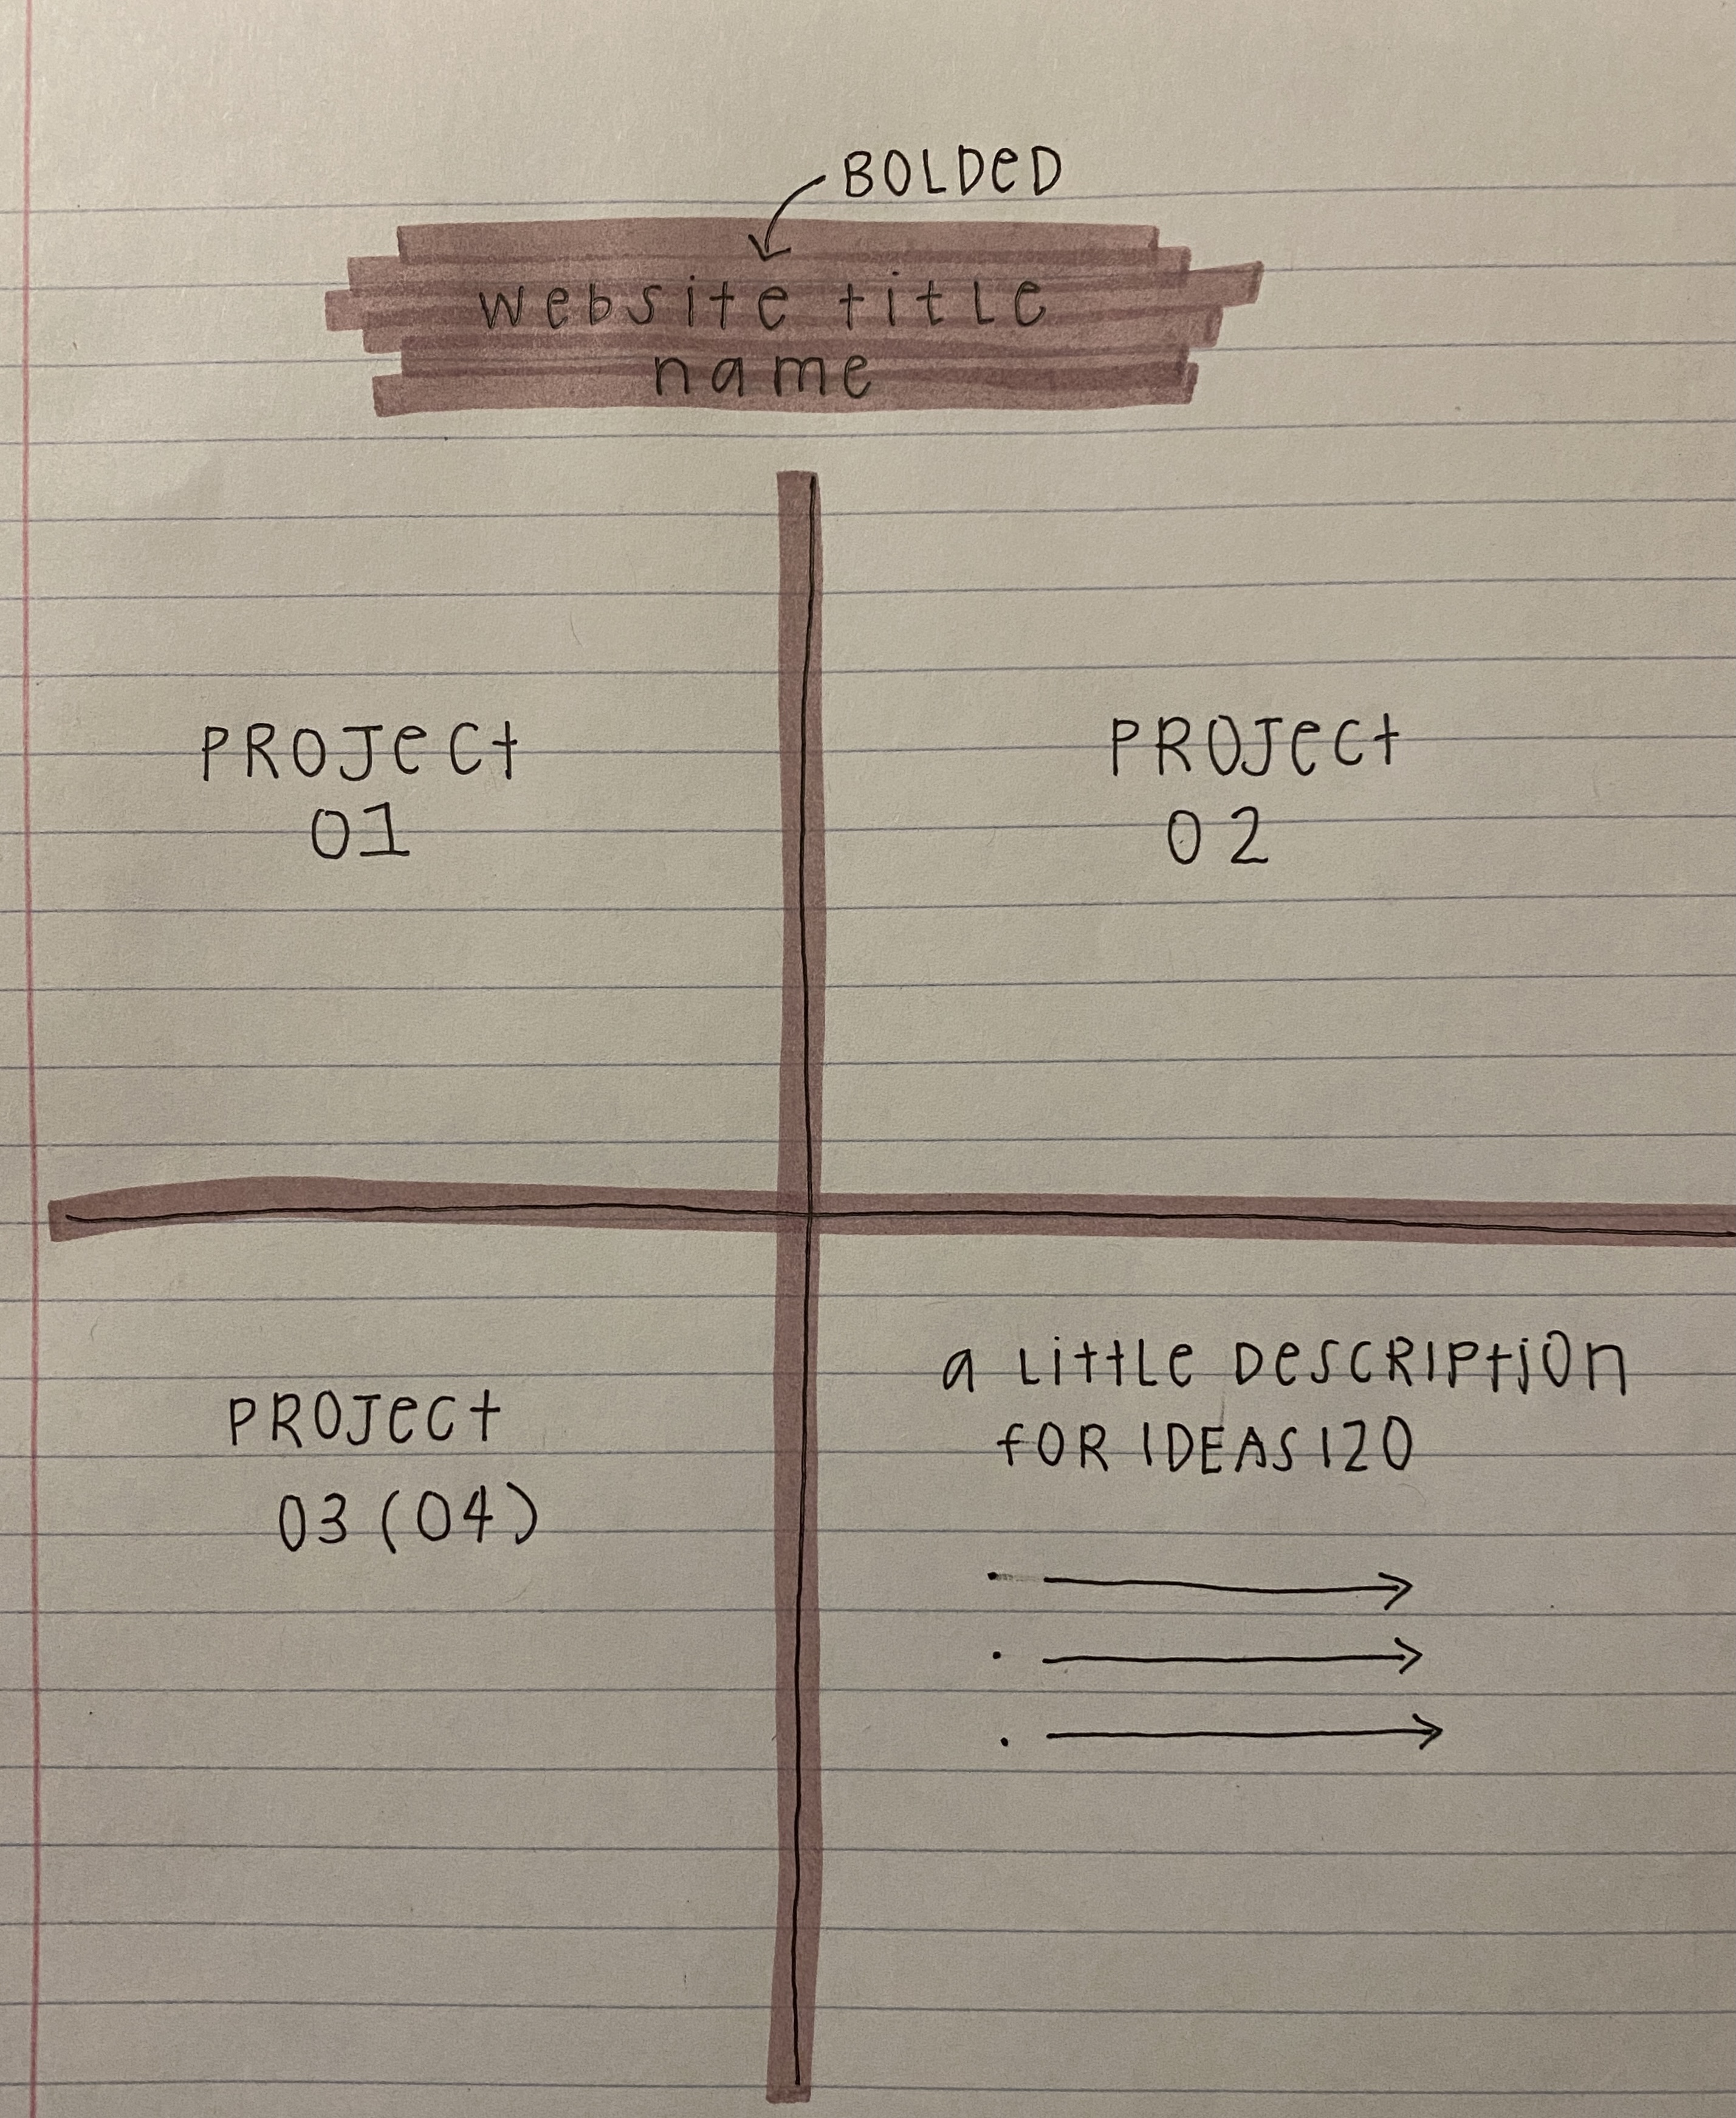 BOLDeD
website title
name
PROJect
01
PROJect
02
PROJect
03 (04)
a LittLe DescRIPtiOn
fOR IDEAS 120